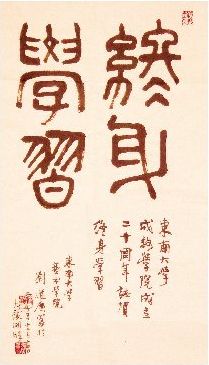 終身
學習
東南大學
成教學院成立
二十周年誌賀
終身學習
東南大學
藝術學院
劉道廣